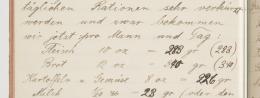 täglichen Rationen sehr verkürz
werden und zwar bekommen
wir jetzt pro Mann und Tag:
Fleisch 10 oz - 283 gr (283)
Brot 12 oz - 340 gr (340)
Kartoffeln + Gemüse 8 oz - 226 gr
Milch - 28 gr (oder den